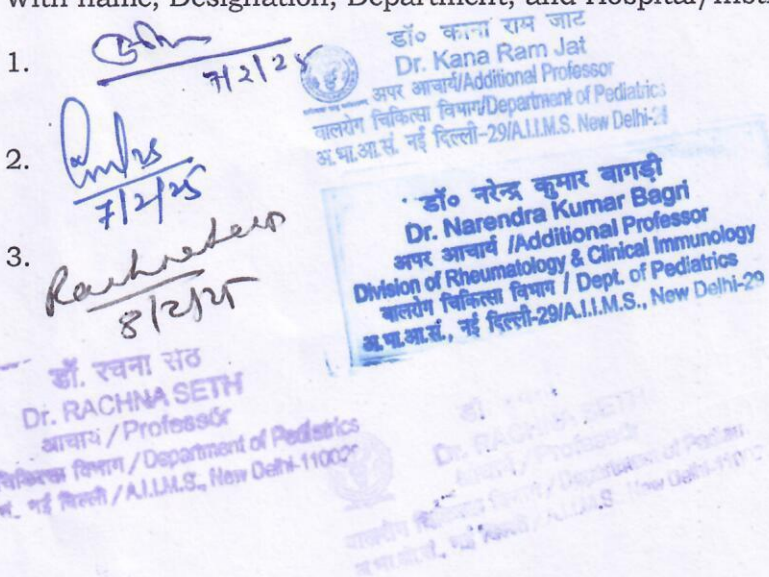 with name, Designation, Department, and Hospital/
1.
7/2/25
डॉ० काना राम जाट
Dr. Kana Ram Jat
अपर आचार्य/Additional Professor
बालरोग चिकित्सा विभाग/Department of Pediatrics
अ.भा.आ.सं. नई दिल्ली-29/A.I.I.M.S. New Delhi-
2.
7/2/25
डॉ० नरेन्द्र कुमार बागड़ी
Dr. Narendra Kumar Bagri
अपर आचार्य /Additional Professor
Division of Rheumatology & Clinical Immunology
बालरोग चिकित्सा विभाग / Dept. of Pediatrics
अ.भा.आ.सं., नई दिल्ली-29/A.I.I.M.S., New Delhi-29
3.
8/2/25
डॉ. रचना सेठ
Dr. RACHNA SETH
आचार्य / Professor
चिकित्सा विभाग / Department of Pediatrics
नई दिल्ली / A.I.I.M.S., New Delhi-1100
Dr. RACHNA SETH
आचार्य / Professor
बालरोग / Department of
नई दिल्ली / A.I.I.M.S. New Delhi-1100